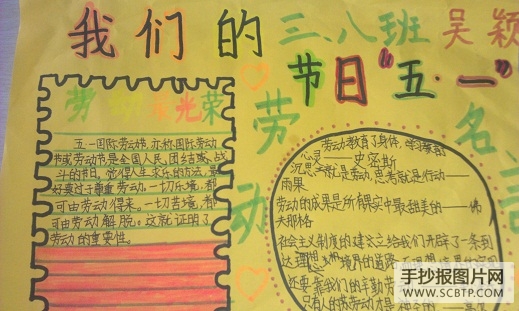 我们的三、八班吴颖
节日"五·一"
劳动最光荣
五一国际劳动节,亦称国际劳动
节或劳动节是全国人民,团结或,战
斗的节日。觉得人生求乐的方法,最
好莫过于尊重劳动。一切乐境,都
可由劳动得来。一切苦境,都
可由劳动解脱。这就证明了
劳动的重要性。
劳动名言
劳动教育了身体,学习教育
心灵——史密斯
沉思就是劳动,思考就是行动——
雨果
劳动的成果是所有果实中最甜美的——佛
夫那格
社会主义制度的建立给我们开辟了一条到
达理想境界的道路
还要靠我们的辛勤劳
只有人的劳动才是神
手抄报图片网
WWW.SCBTP.COM